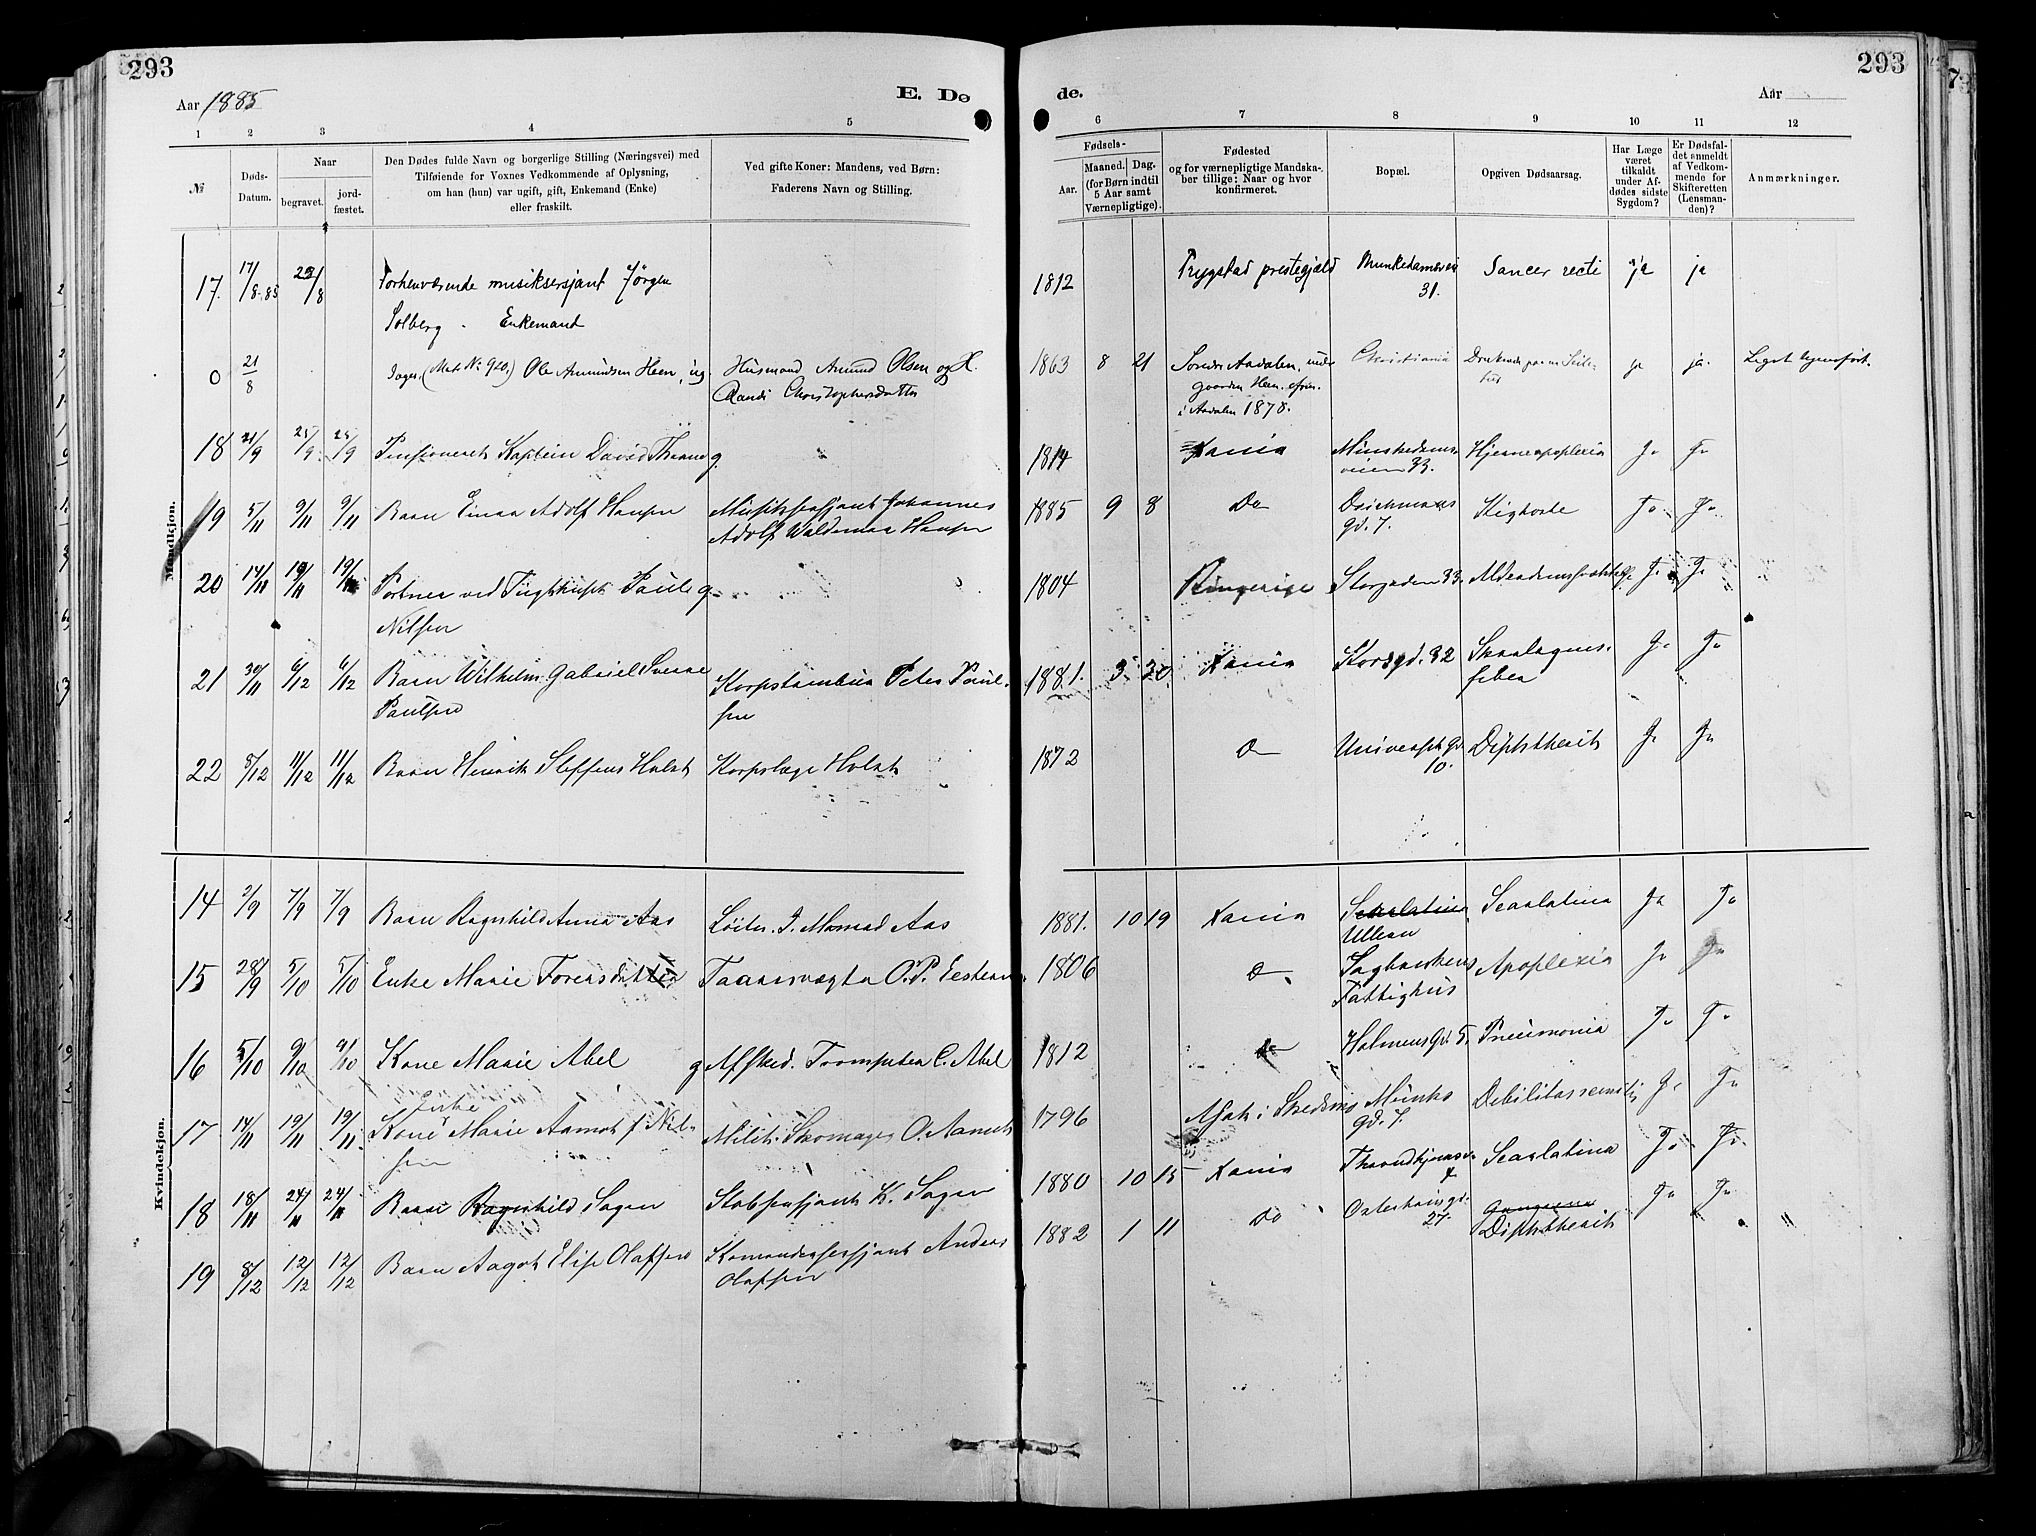 293
Aar 1885
E. Dø
1 2 3 4 5
№
Døds-
Datum.
Naar
begravet.
jord-
fæstet.
Den Dødes fulde Navn og borgerlige Stilling (Næringsvei) med
Tilføiende for Voxnes Vedkommende af Oplysning,
om han (hun) var ugift, gift, Enkemand (Enke)
eller fraskilt.
Ved gifte Koner: Mandens, ved Børn:
Faderens Navn og Stilling.
Mandkjøn.
17. 17/8.85 /8 Forhenværende musiksersjant Jörgen
Solberg . Enkemand
0 21/8 Jager. (Mat. Nº 920.) Ole Amundsen Heen, ug. Husmand Amund Olsen og H.
Randi Christophersdatter
18 21/9 25/9 25/9 Pensioneret Kaptein David Thrane g.
19 5/11 9/11 9/11 Barn Einar Adolf Hansen Musiksersjant Johannes
Adolf Waldemar Hansen
20 14/11 19/11 19/11 Portner ved Tugthuset Paul g.
Nilsen
21 30/11 6/12 6/12 Barn Wilhelm Gabriel Sverre Korpstambur Peter Paul-
Paulsen sen
22 5/12 11/12 11/12 Barn Henrik Steffens Holst Korpslæge Holst
Kvindekjøn.
14 2/9 7/9 7/9 Barn Ragnhild Anna Aas Løitn. J. Monrad Aas
15 28/9 5/10 5/10 Enke Marie Taarnvægter O. P.
16 5/10 9/10 9/10 Kone Marie Abel g Afsked. Trompeter C. Abel
Enke
17 14/11 19/11 19/11 Kone Marie Aamot f. Nil- Milit. Skomager O. Aamot
sen
18 18/11 24/11 24/11 Barn Ragnhild Sagen Stabssersjant K. Sagen
19 8/12 12/12 12/12 Barn Aagot Elise Olafsen Komandersersjant Anders
Olafsen
293
de.
Aar
6 7 8 9 10 11 12
Fødsels-
Aar.
Maaned. Dag.
(for Børn indtil
5 Aar samt
Værnepligtige).
Fødested
og for værnepligtige Mandska-
ber tillige: Naar og hvor
konfirmeret.
Bopæl.
Opgiven Dødsaarsag.
Har Læge
været
tilkaldt
under Af-
dødes sidste
Sygdom?
Er Dødsfal-
det anmeldt
af Vedkom-
mende for
Skifteretten
(Lensman-
den)?
Anmærkninger.
1812 Trygstad prestegjæld Munkedamsvei Cancer recti ja ja
31.
1863 8 21 Søndre Aadalen, under Christiania ja ja. Liget hjemført.
gaarden Heen.
i Aadalen 1878.
1814 Xania Munkedams- Hjerneapoplexia Ja Ja
veien 33.
1885 9 8 Do Deichmans Kighoste Ja Ja
gd. 7.
1804 Ringerige Storgaden 33. Ja Ja
1881. 3 30 Xania Korsgd. 32 Skarlagens- Ja Ja
feber
1872 Do Universit. Gd. Diphtherit Ja Ja
10.
1881. 10 19 Xania Scarlatina Scarlatina Ja Ja
Ullern
1806 Do Sagbankens Apoplexia Ja Ja
Fattighus
1812 Do Holmens Gd. 5. Pneumonia Ja Ja
1796 Skedsmo Munke Debilitas senilis Ja Ja
gd. 7.
1880 10 15 Xania Throndhjemsv. Scarlatina Ja Ja
1882 1 11 Do Ja Ja
27. Diphtherit